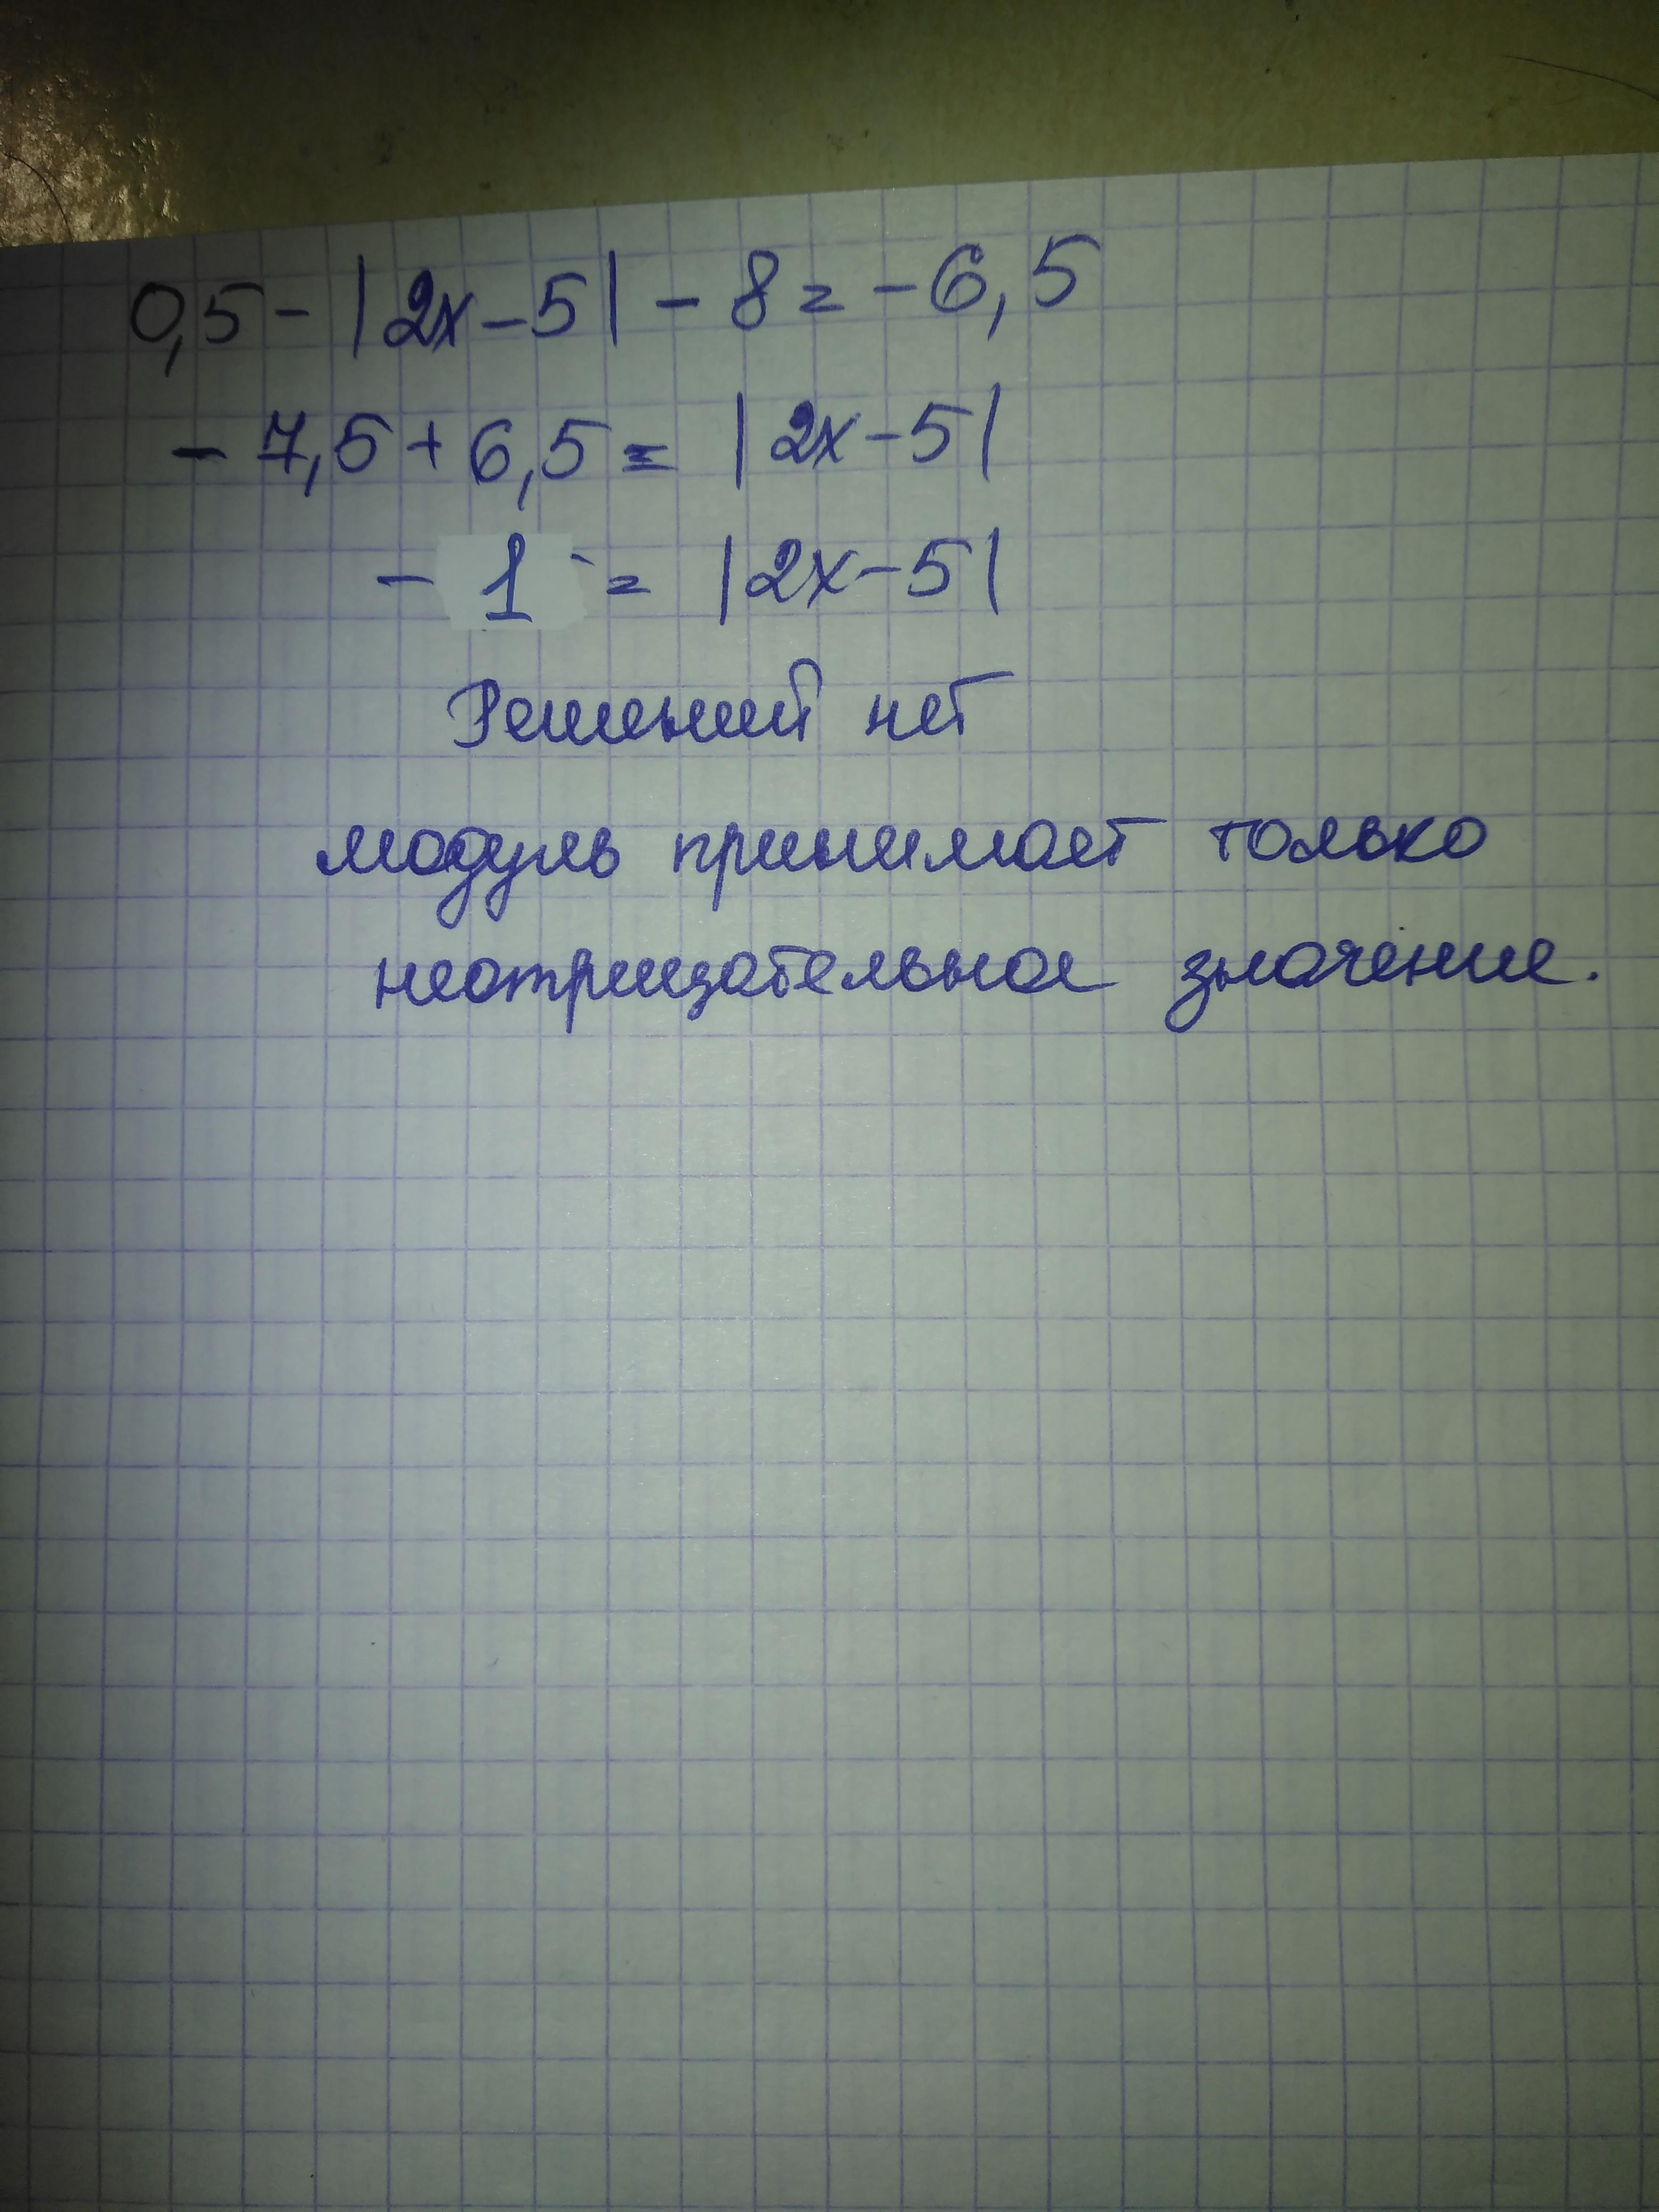 0,5 - |2x - 5| - 8 = - 6,5
- 7,5 + 6,5 = |2x - 5|
- 1 = |2x - 5|
Решений нет
модуль принимает только
неотрицательное значение.